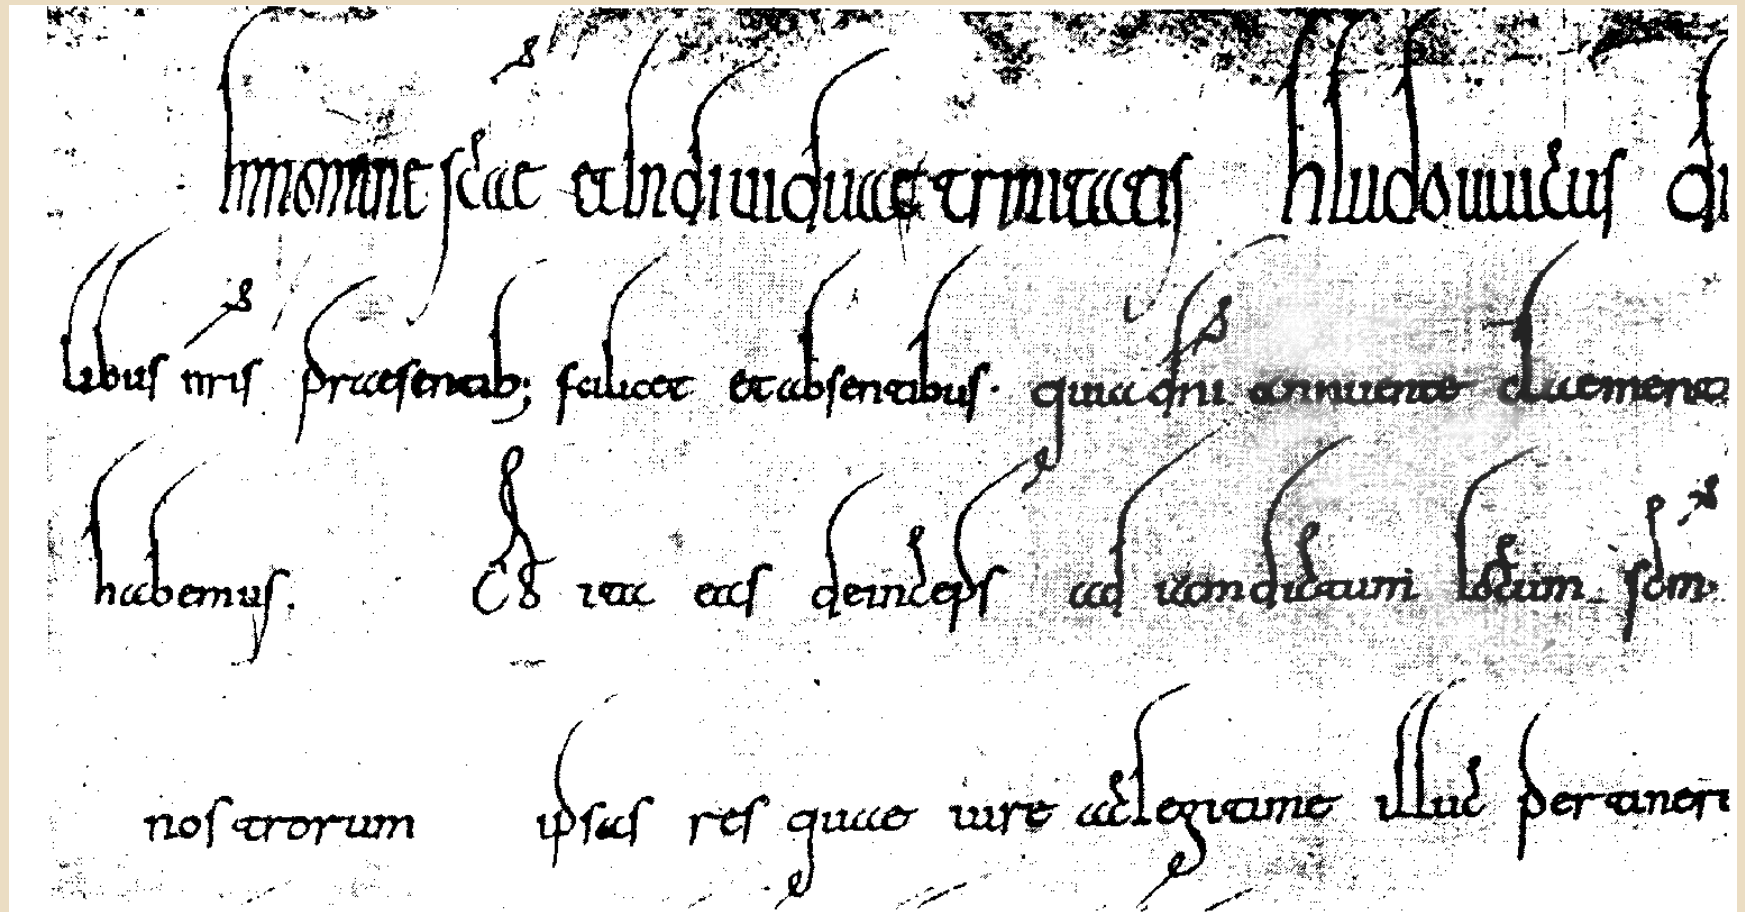 In nomine scae et indiuiduae trinitatis hludouuicus di
libus nris praesentib; scilicet et absentibus. quia dni annuente clementia
habemus. ita eas deinceps ad iam dictum locum scm
nostrorum ipsas res quae iure ac legitime illuc pertinere